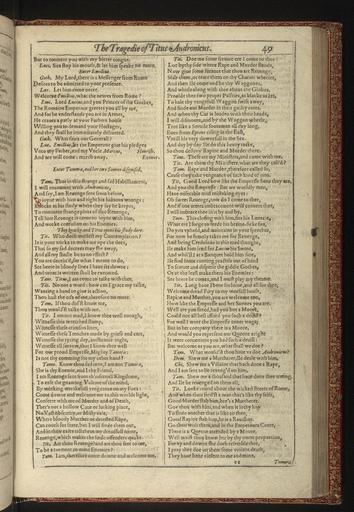 The Tragedie of Titus Andronicus. 49
But to torment you with my bitter tongue.
Luci. Stop his mouth, & let him speake no more.
Enter Emillius.
Goth. My Lord, there is a Messenger from Rome
Desires to be admitted to your presence.
Luc. Let him come neere.
Welcome Emillius, what the newes from Rome?
Emi. Lord Lucius, and you Princes of the Gothes,
The Romaine Emperour greetes you all by me,
And for he understands you are in Armes,
He craves a parly at your Fathers house
Willing you to demand your Hostages,
And they shall be immediately delivered.
Goth. What saies our Generall?
Luc. Emillius, let the Emperour give his pledges
Vnto my Father, and my Vncle Marcus,
And we will come: march away. Exeunt.
Enter Tamora, and her two Sonnes disguised.
Tam. Thus in this strange and sad Habilliament,
I will encounter with Andronicus,
And say, I am Revenge sent from below,
To joyne with him and right his hainous wrongs:
Knocke at his study where they say he keepes,
To ruminate strange plots of dire Revenge,
Tell him Revenge is come to joyne with him,
And worke confusion on his Enemies.
They knocke and Titus opens his study dore.
Tit. Who doth mollest my Contemplation?
Is it your tricke to make me ope the dore,
That so my sad decrees may flie away,
And all my studie be to no effect?
You are deceiv'd, for what I meane to do,
See heere in bloody lines I have set downe:
And what is written shall be executed.
Tam. Titus, I am come to talke with thee,
Tit. No not a word: how can I grace my talke,
Wanting a hand to give it action,
Thou hast the ods of me, therefore no more.
Tam. If thou did'st know me,
Thou would'st talke with me.
Tit. I am not mad, I know thee well enough,
Witnesse this wretched stump,
Witnesse these crimson lines,
Witnesse these Trenches made by griefe and care,
Witnesse the tyring day, and heavie night,
Witnesse all sorrow, that I know thee well
For our proud Empresse, Mighty Tamora:
Is not thy comming for my other hand?
Tamo. Know thou sad man, I am not Tamora,
She is thy Enemie, and I thy Friend,
I am Revenge sent from th'infernall Kingdome,
To ease the gnawing Vulture of the mind,
By working wreakefull vengeance on my Foes:
Come downe and welcome me to this worlds light,
Conferre with me of Murder and of Death,
Ther's not a hollow Cave or lurking place,
No Vast obscurity, or Misty vale,
Where bloody Murther or detested Rape,
Can couch for feare, but I will finde them out,
And in their eares tell them my dreadfull name,
Revenge, which makes the foule offenders quake.
Tit. Art thou Revenge? and art thou sent to me,
To be a torment to mine Enemies?
Tam. I am, therefore come downe and welcome me.
Tit. Doe me some service ere I come to thee:
Loe by thy side where Rape and Murder stands,
Now give some surance that thou art Revenge,
Stab them, or teare them on thy Chariot wheeles,
And then Ile come and be thy Waggoner,
And whirle along with thee about the Globes.
Provide thee two proper Palfries, as blacke as Iet,
To hale thy vengefull Waggon swift away,
And finde out Murder in their guilty caves.
And when thy Car is loaden with their heads,
I will dismount, and by the Waggon wheele,
Trot like a Servile footeman all day long,
Even from Eptons rising in the East,
Vntill his very downefall in the Sea.
And day by day Ile do this heavy taske,
So thou destroy Rapine and Murder there.
Tam. These are my Ministers, and come with me.
Tit. Are them thy Ministers, what are they call'd?
Tam. Rape and Murder, therefore called so,
Cause they take vengeance of such kind of men.
Tit. Good Lord how like the Empresse Sons they are,
And you the Empresse: But we worldly men,
Have miserable mad mistaking eyes:
Oh sweet Revenge, now do I come to thee,
And if one armes imbracement will content thee,
I will imbrace thee in it by and by.
Tam. This closing with him, fits his Lunacie,
What ere I forge to feede his braine-sicke fits,
Do you uphold, and maintaine in your speeches,
For now he firmely takes me for Revenge,
And being Credulous in this mad thought,
Ile make him send for Lucius his Sonne,
And whil'st I at a Banquet hold him sure,
Ile find some cunning practise out of hand
To scatter and disperse the giddie Gothes,
Or at the least make them his Enemies:
See heere he comes, and I must play my theame.
Tit. Long have I bene forlorne, and all for thee,
Welcome dread Fury to my woefull house,
Rapine and Murther, you are welcome too,
How like the Empresse and her Sonnes you are.
Well are you fitted, had you but a Moore,
Could not all hell afford you such a devill?
For well I wote the Empresse never wags;
But in her company there is a Moore,
And would you represent our Queene aright
It were convenient you had such a devill:
But welcome as you are, what shall we doe?
Tam. What would'st thou have us doe Andronicus?
Dem. Shew me a Murtherer, Ile deale with him.
Chi. Shew me a Villaine that hath done a Rape,
And I am sent to be reveng'd on him.
Tam. Shew me a thousand that have done thee wrong,
And Ile be revenged on them all.
Tit. Looke round about the wicked streets of Rome,
And when thou find'st a man that's like thy selfe,
Good Murder stab him, hee's a Murtherer.
Goe thou with him, and when it is thy hap
To finde another that is like to thee,
Good Rapine stab him, he is a Ravisher.
Go thou with them, and in the Emperours Court,
There is a Queene attended by a Moore,
Well maist thou know her by thy owne proportion,
For up and downe she doth resemble thee,
I pray thee doe on them some violent death,
They have bene violent to me and mine.
Tamora.